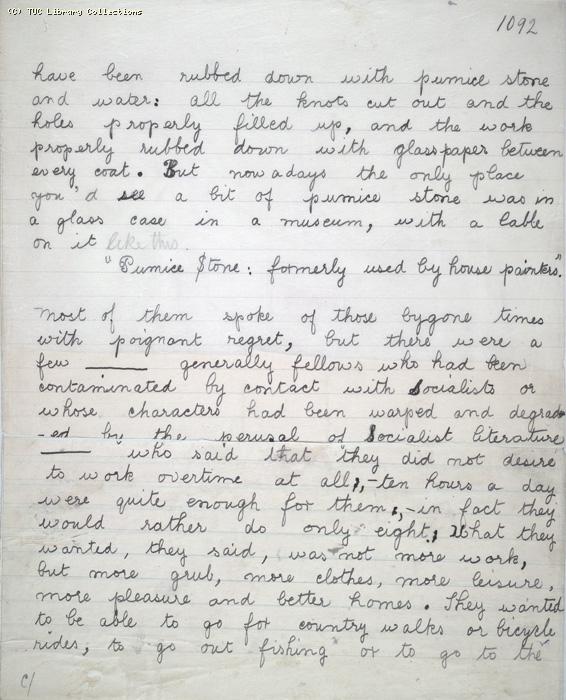 (C) TUC Library Collections
1092
have been rubbed down with pumice stone
and water: all the knots cut out and the
holes properly filled up, and the work
properly rubbed down with glasspaper between
every coat. But nowadays the only place
you'd see a bit of pumice stone was in
a glass case in a museum, with a lable
on it like this.
"Pumice Stone: formerly used by house painters."
Most of them spoke of those bygone times
with poignant regret, but there were a
few —— generally fellows who had been
contaminated by contact with Socialists or
whose characters had been warped and degrad-
-ed by the perusal of Socialist literature
—— who said that they did not desire
to work overtime at all;,-ten hours a day
were quite enough for them;,-in fact they
would rather do only eight; What they
wanted, they said, was not more work,
but more grub, more clothes, more leisure,
more pleasure and better homes. They wanted
to be able to go for country walks or bicycle
rides, to go out fishing or to go to the
c/